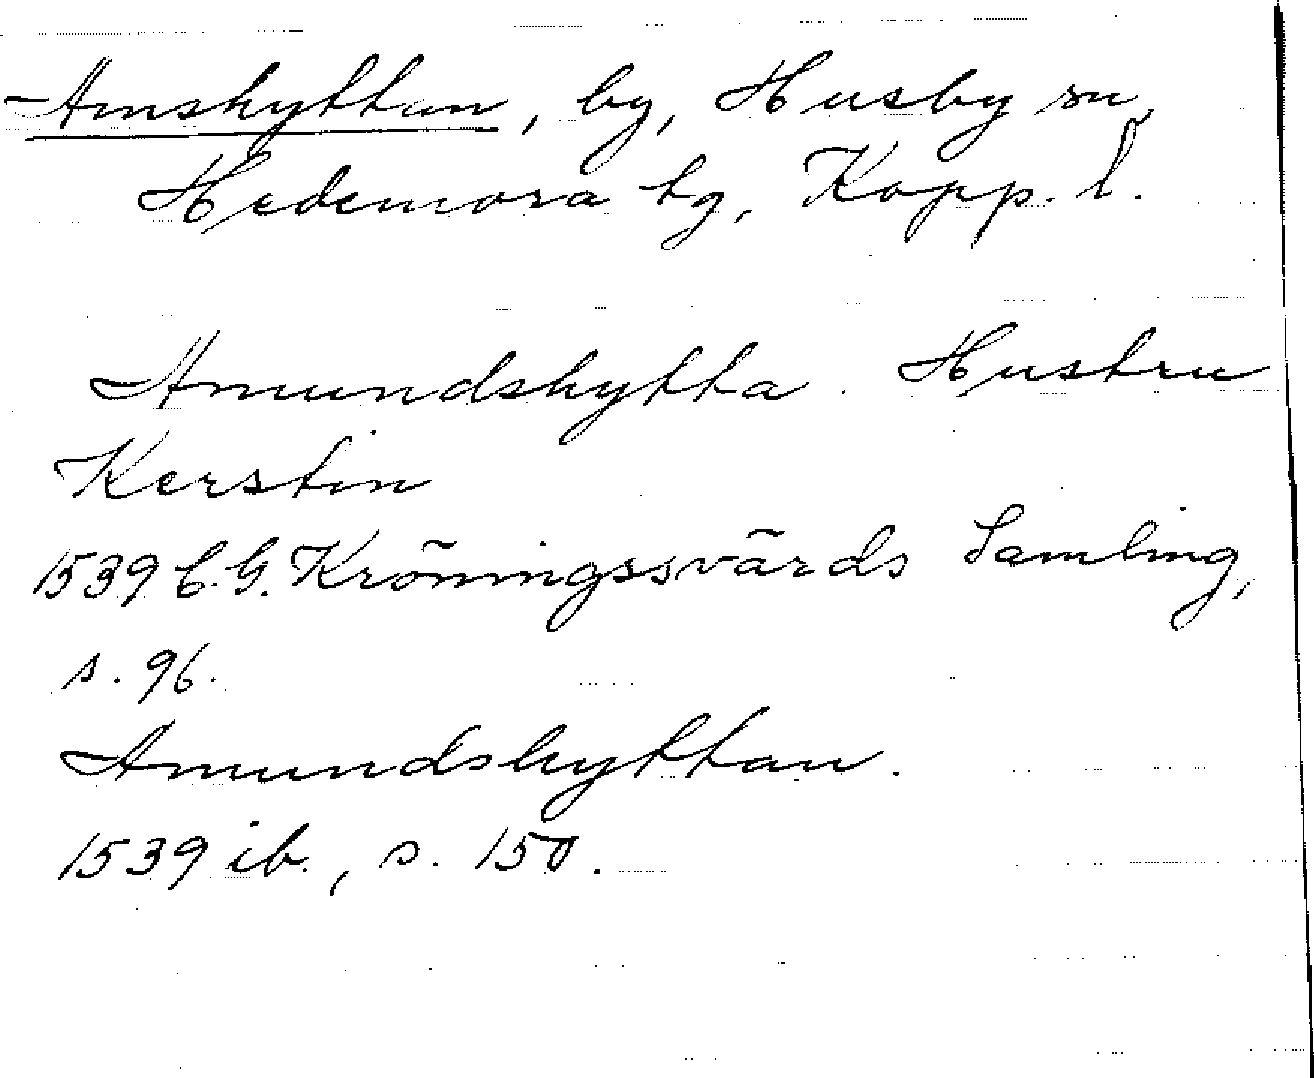 Amshyttan, by, Husby sn,
Hedemora tg, Kopp. l.
Amundshytta. Hustru
Kerstin
1539 C.G. Kröningssvärds Samling,
s. 96.
Amundshyttan.
1539 ib., s. 150.